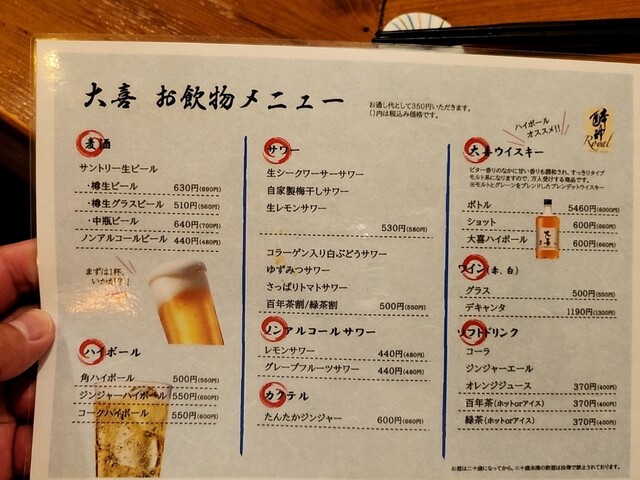 大喜 お飲物メニュー
お通し代として350円いただきます。
()内は税込み価格です。
麦酒
サントリー生ビール
・樽生ビール 630円(690円)
・樽生グラスビール 510円(560円)
・中瓶ビール 640円(700円)
ノンアルコールビール 440円(480円)
まずは1杯、
いかが?!
ハイボール
角ハイボール 500円(550円)
ジンジャーハイボール 550円(600円)
コークハイボール 550円(600円)
サワー
生シークワーサーサワー
自家製梅干しサワー
生レモンサワー
530円(580円)
コラーゲン入り白ぶどうサワー
ゆずみつサワー
さっぱりトマトサワー
百年茶割/緑茶割 500円(550円)
ノンアルコールサワー
レモンサワー 440円(480円)
グレープフルーツサワー 440円(480円)
カクテル
たんたかジンジャー 600円(660円)
ハイボール
オススメ!!
Royal
大喜ウイスキー
ビター香りのなかに甘い香りも調和され、すっきりタイプ
モルト系になりますので、万人受けする商品です。
※モルトとグレーンをブレンドしたブレンデットウイスキー
ボトル 5460円(6000円)
ショット 600円(660円)
大喜ハイボール 600円(660円)
大喜
ワイン(赤、白)
グラス 500円(550円)
デキャンタ 1190円(1300円)
ソフトドリンク
コーラ
ジンジャーエール
オレンジジュース 370円(400円)
百年茶(ホットorアイス) 370円(400円)
緑茶(ホットorアイス) 370円(400円)
お酒は二十歳になってから。二十歳未満の飲酒は法律で禁止されております。